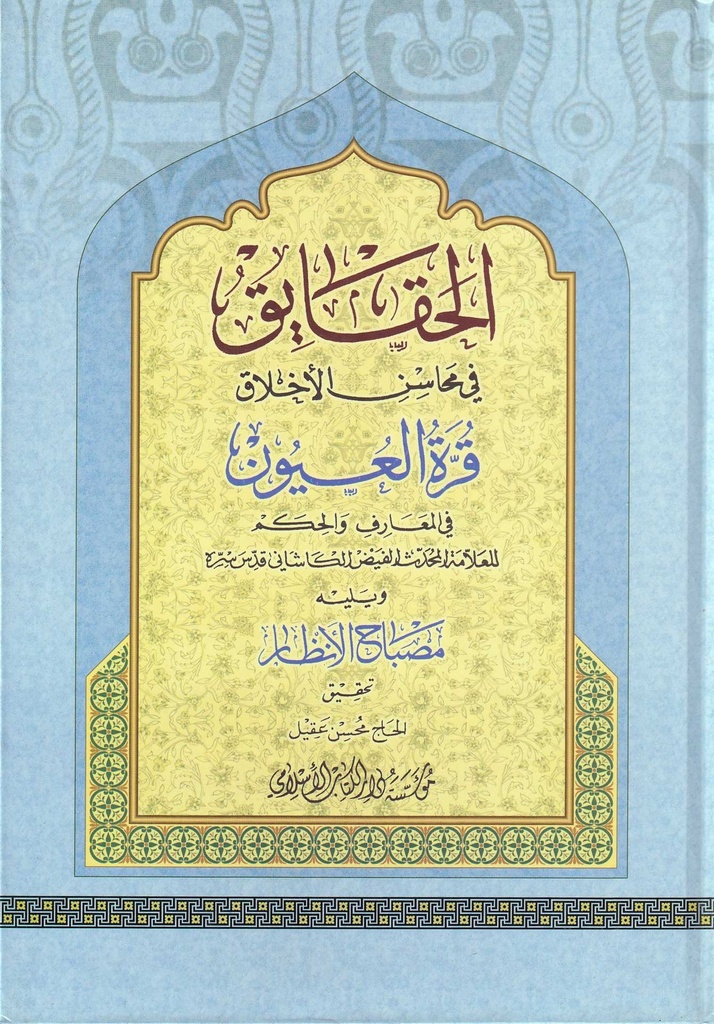 الحَقَايِقُ
في مَحَاسِنِ الأخلاق
قُرَّةُ العُيُونِ
في المَعَارِفِ وَالحِكَم
للعلّامة المُحَدّث الفَيْض الكاشاني قدّس سرّه
ويليه
مصْبَاح الأنظار
تحقيق
الحاج مُحسِن عَقِيل
مُؤسّسَة دار الكتاب الإسلامي